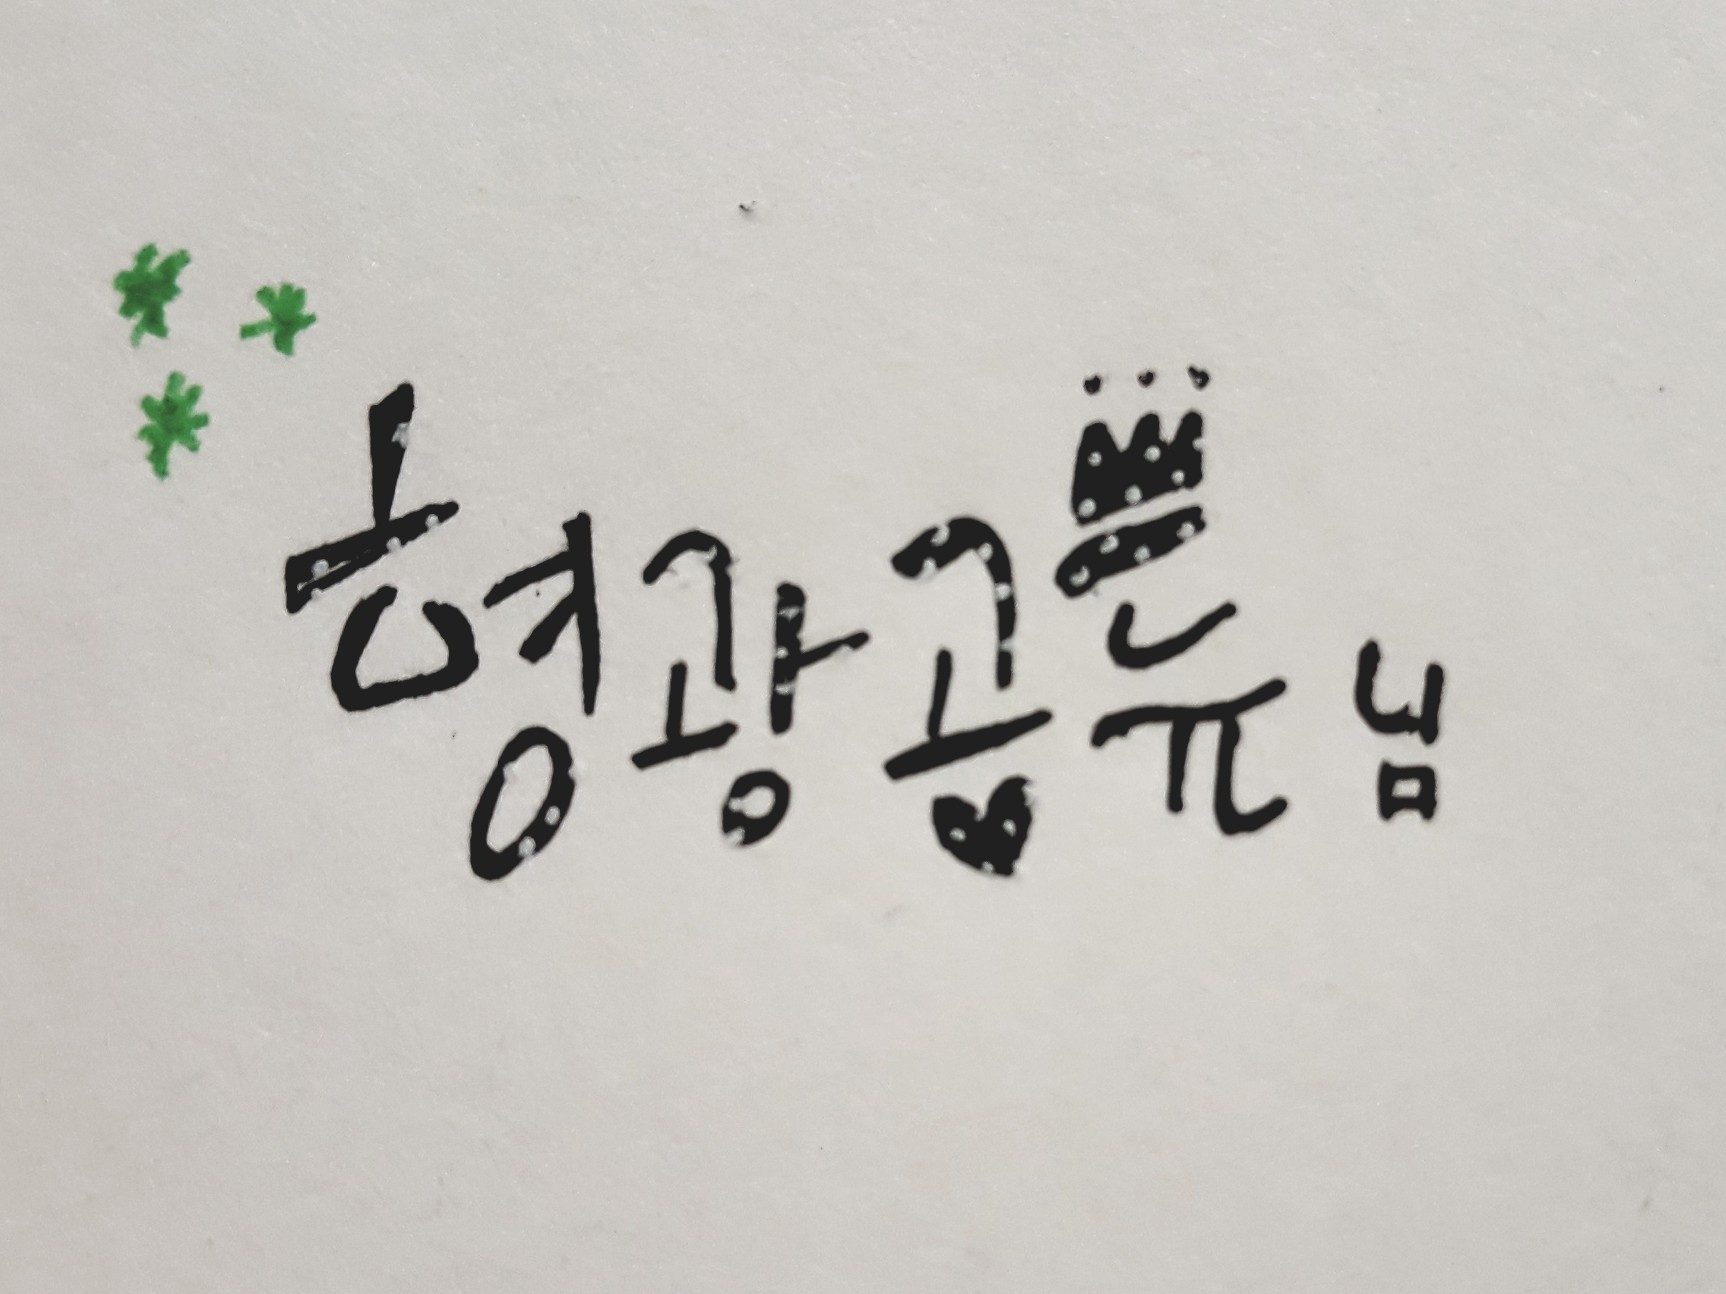 형광공듀님